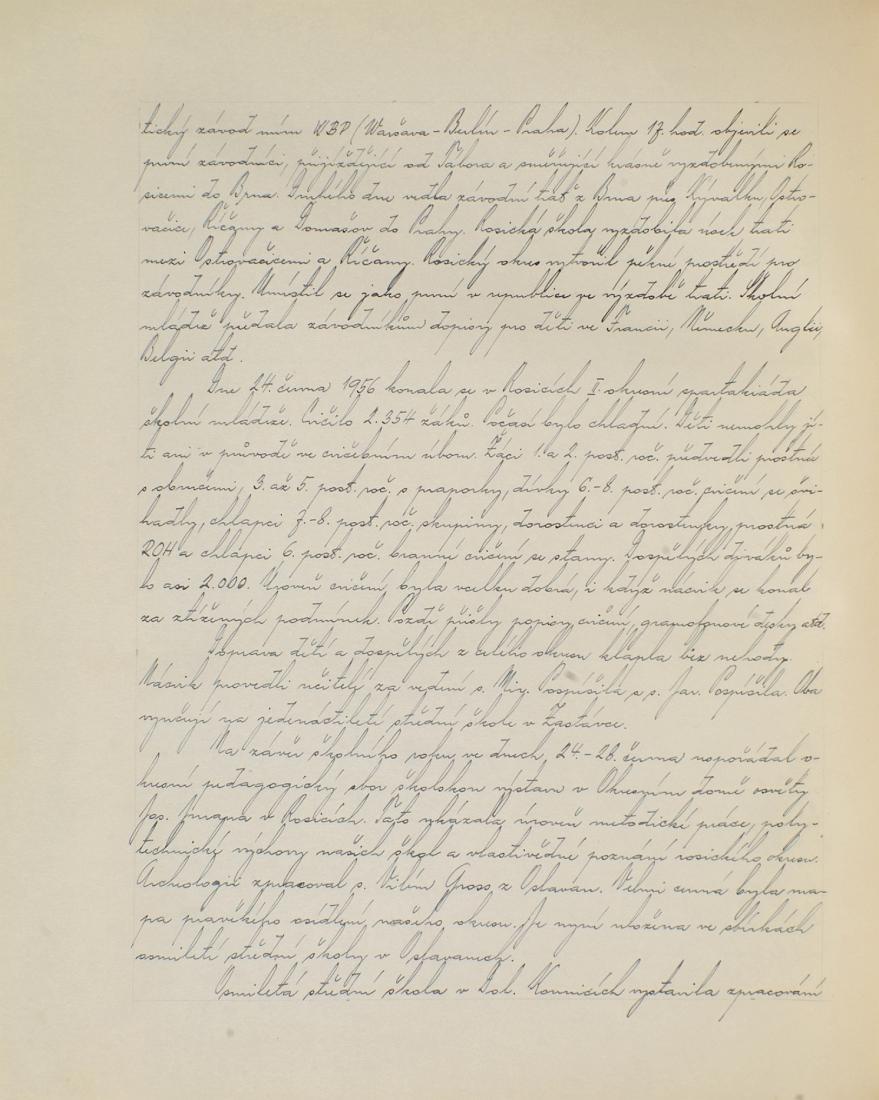 tický závod míru WBP (Waršava - Berlín - Praha). Kolem 17. hod. objevili se
první závodníci, přijíždějící od Tábora a směřující krásně vyzdobenými Ro-
sicemi do Brna. Druhého dne vedla závodní trať z Brna přes Kývalku, Ostro-
vačice, Říčany a Domašov do Prahy. Rosická škola vyzdobila úsek trati
mezi Ostrovačicemi a Říčany. Rosický okres vytvořil pěkné prostředí pro
závodníky. Umístil se jako první v republice ve výzdobě trati. Školní
mládež předala závodníkům dopisy pro děti ve Francii, Německu, Anglii,
Belgii atd.
Dne 24. června 1956 konala se v Rosicích II. okresní spartakiáda
školní mládeže. Cvičilo 2.354 žáků. Počasí bylo chladné. Děti nemohly jí-
ti ani v průvodě ve cvičebním úboru. Žáci 1. a 2. post. roč. předvedli prostná
s obručemi, 3. až 5. post. roč. s praporky, dívky 6.-8. post. roč. cvičení se švi-
hadly, chlapci 7.-8. post. roč. skupiny, dorostenci a dorostenky prostná
ROH a chlapci 6. post. roč. branné cvičení se stany. Dospělých diváků by-
lo asi 2.000. Úroveň cvičení byla vcelku dobrá, i když nácvik se konal
za ztížených podmínek. Pozdě přišly popisy cvičení, gramofonové desky atd.
Doprava dětí a dospělých z celého okresu klapla bez nehody.
Nácvik provedli učitelé za vedení s. Mir. Pospíšila a s. Jar. Pospíšila. Oba
vyučují na jedenáctileté střední škole v Zastávce.
Na závěr školního roku ve dnech 24.-28. června uspořádal o-
kresní pedagogický sbor školskou výstavu v Okresním domě osvěty
Jos. Jurana v Rosicích. Tato ukázala úroveň metodické práce, poly-
technické výchovy našich škol a vlastivědné poznání rosického okresu.
Archeologii zpracoval s. Vilém Gross z Oslavan. Velmi cenná byla ma-
pa pravěkého osídlení našeho okresu. Je nyní uložena ve sbírkách
osmileté střední školy v Oslavanech.
Osmiletá střední škola v Dol. Kounicích vystavila zpracování